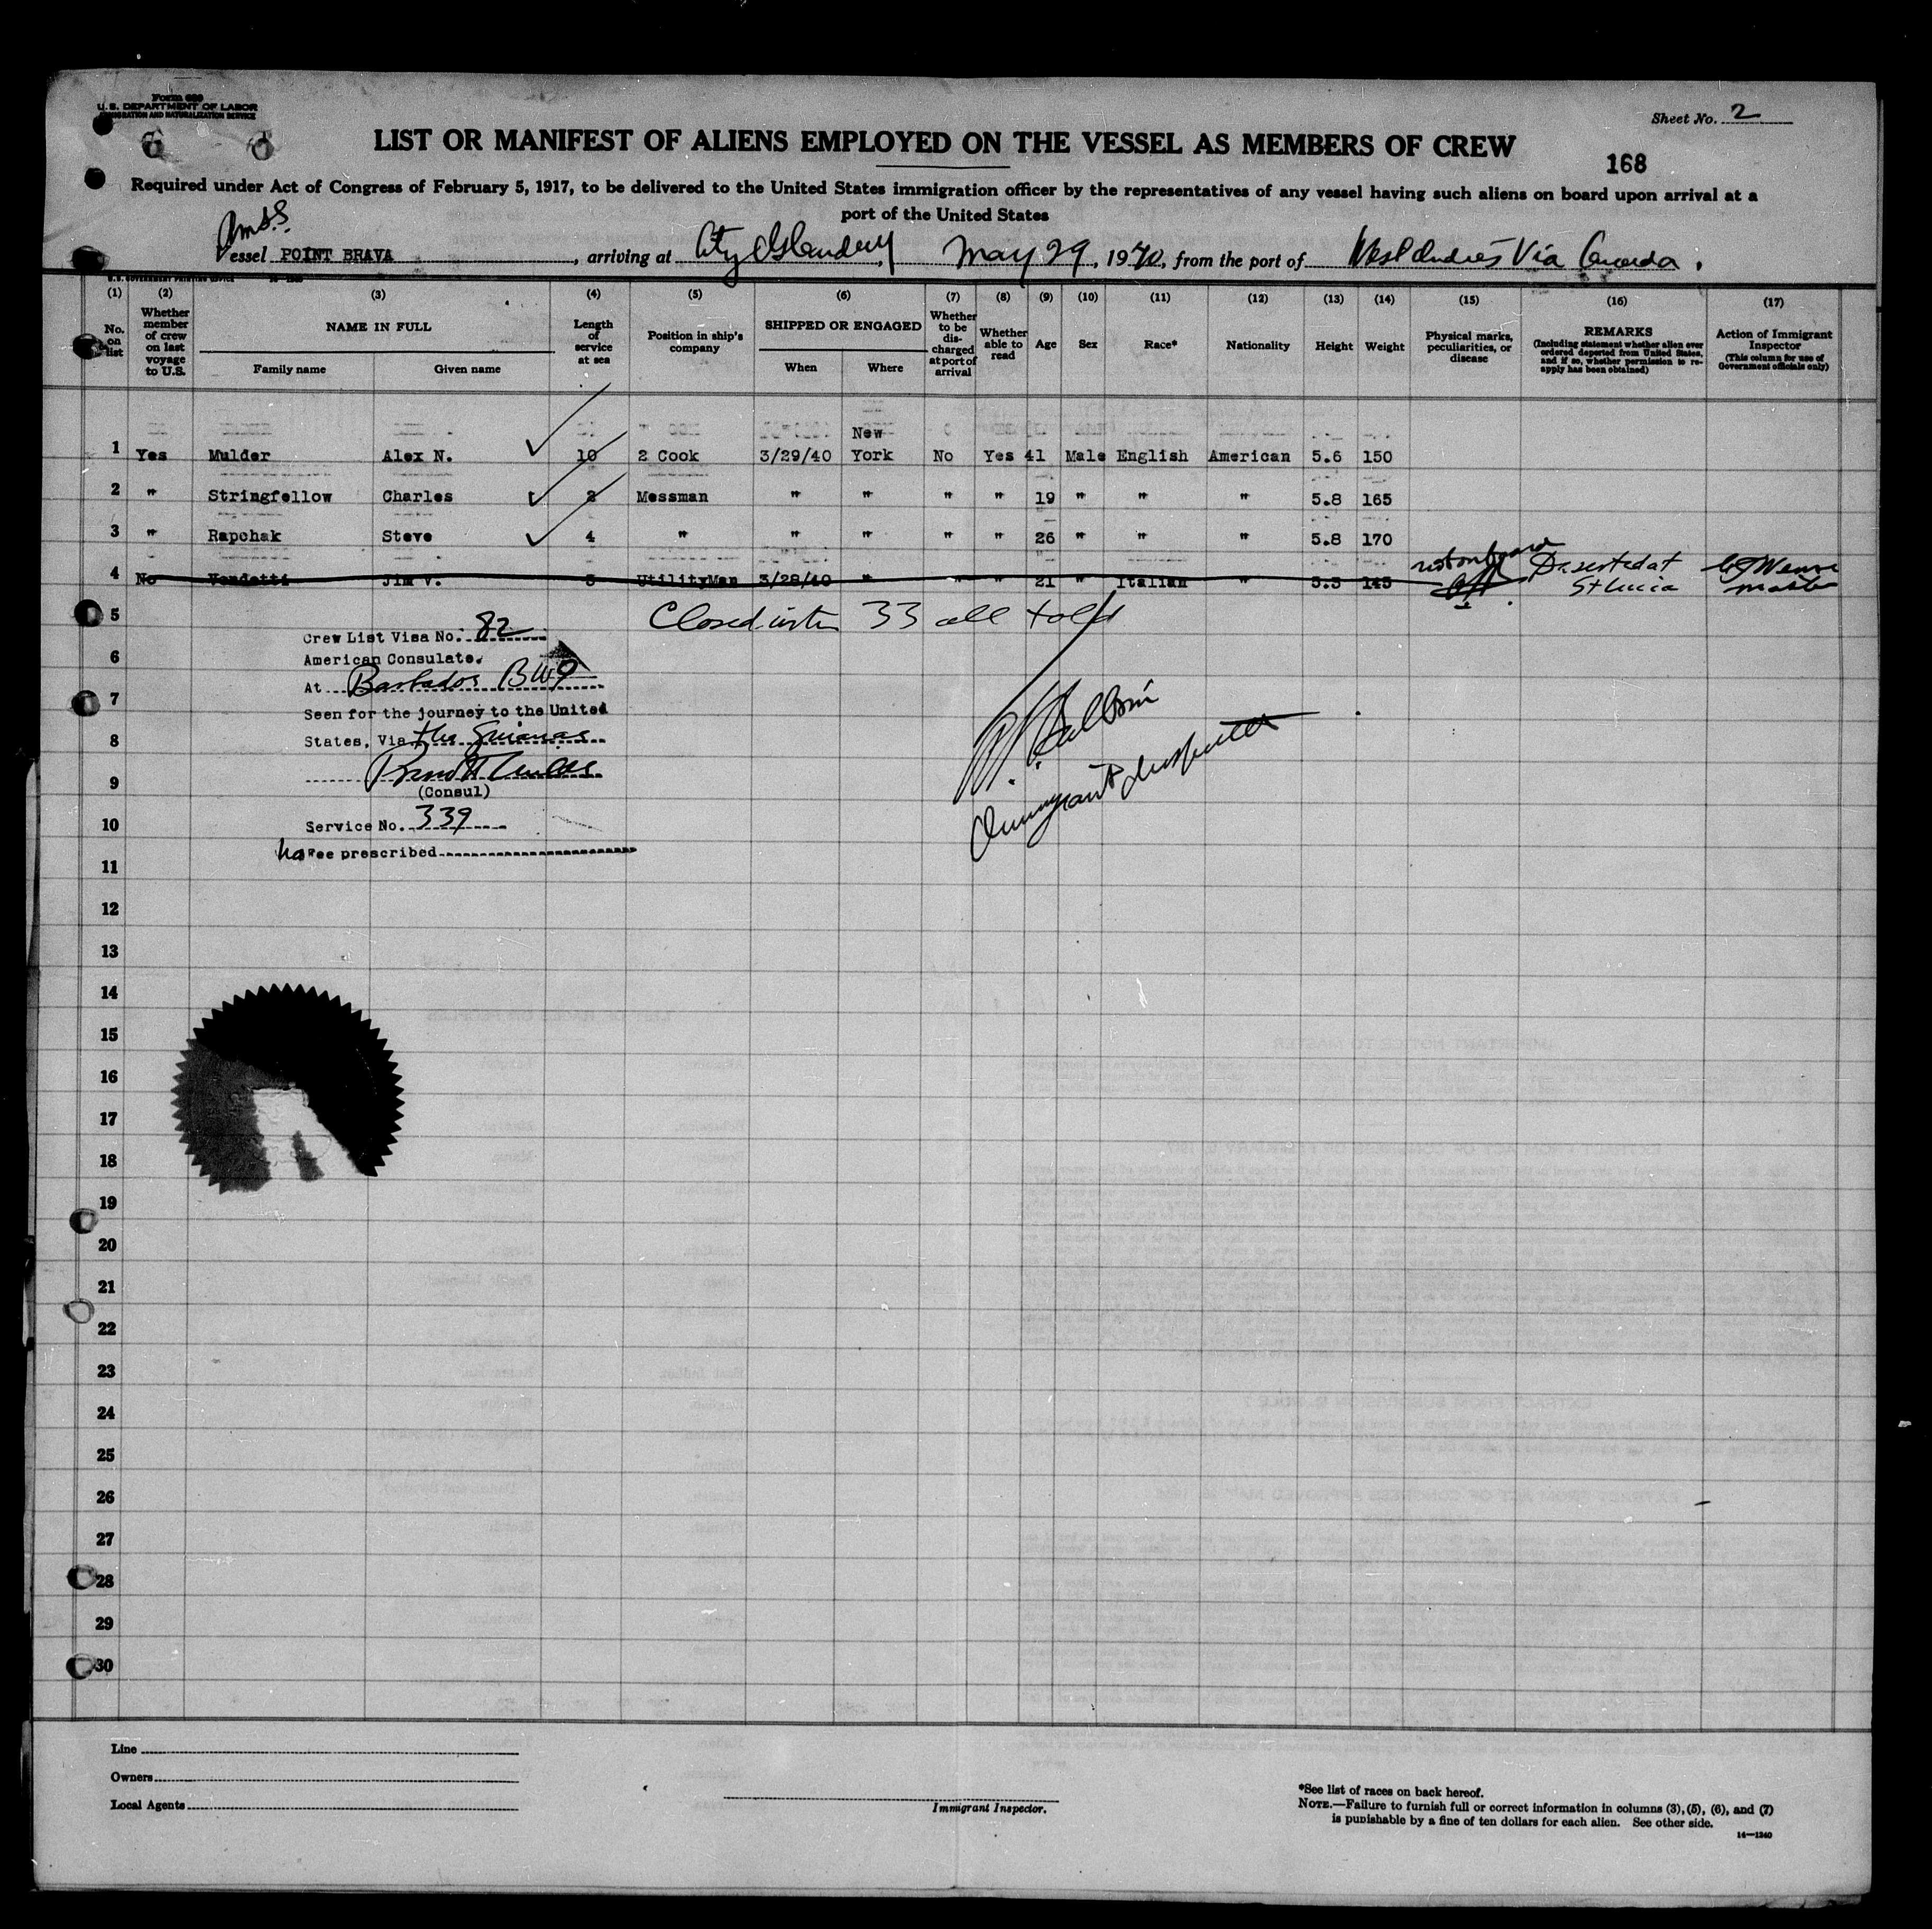 Form 689
U. S. DEPARTMENT OF LABOR
IMMIGRATION AND NATURALIZATION SERVICE
Sheet No. 2
LIST OR MANIFEST OF ALIENS EMPLOYED ON THE VESSEL AS MEMBERS OF CREW
168
Required under Act of Congress of February 5, 1917, to be delivered to the United States immigration officer by the representatives of any vessel having such aliens on board upon arrival at a
port of the United States
Am S.S.
Vessel POINT BRAVA, arriving at City Island NY, May 29, 1940, from the port of West Indies Via Canada.
U. S. GOVERNMENT PRINTING OFFICE
(1) (2) (3) (4) (5) (6) (7) (8) (9) (10) (11) (12) (13) (14) (15) (16) (17)
No. on list
Whether member of crew on last voyage to U.S.
NAME IN FULL
Family name Given name
Length of service at sea
Position in ship's company
SHIPPED OR ENGAGED
When Where
Whether to be discharged at port of arrival
Whether able to read
Age
Sex
Race*
Nationality
Height
Weight
Physical marks, peculiarities, or disease
REMARKS
(Including statement whether alien ever ordered deported from United States, and if so, whether permission to reapply has been obtained)
Action of Immigrant Inspector
(This column for use of Government officials only)
1 Yes Mulder Alex N. 10 2 Cook 3/29/40 New York No Yes 41 Male English American 5.6 150
2 " Stringfellow Charles 2 Messman " " " " 19 " " " 5.8 165
3 " Rapchak Steve 4 " " " " " 26 " " " 5.8 170
4 No Vendetti Jim V. 3 UtilityMan 3/28/40 " " " 21 " Italian " 5.5 145 not on board Deserted at St Lucia Master
5 Closed with 33 all told
Crew List Visa No. 82
6
American Consulate.
At Barbados BWI
7
Seen for the journey to the United
8
States, Via the Guianas
9
(Consul)
10
Service No. 339
no Fee prescribed
Immigrant Inspector
11
12
13
14
15
16
17
18
19
20
21
22
23
24
25
26
27
28
29
30
Line
Owners
Local Agents
Immigrant Inspector.
*See list of races on back hereof.
NOTE.—Failure to furnish full or correct information in columns (3), (5), (6), and (7)
is punishable by a fine of ten dollars for each alien. See other side.
14—1240